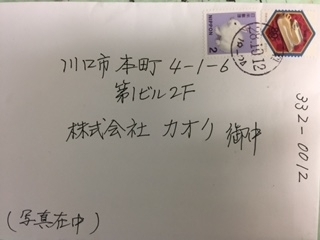 川口市本町4-1-6
第1ビル2F
株式会社 カオリ 御中
332-0012
(写真在中)
NIPPON
2